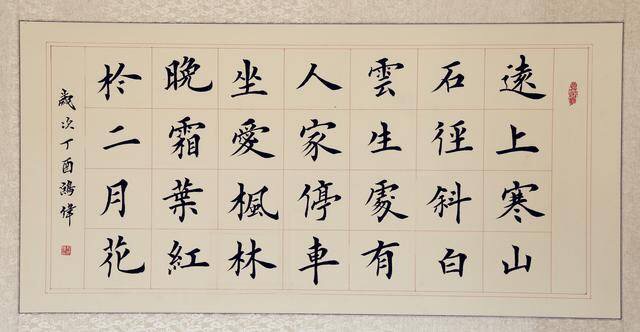 遠上寒山
石徑斜白
雲生處有
人家停車
坐愛楓林
晚霜葉紅
於二月花
歲次丁酉鴻偉